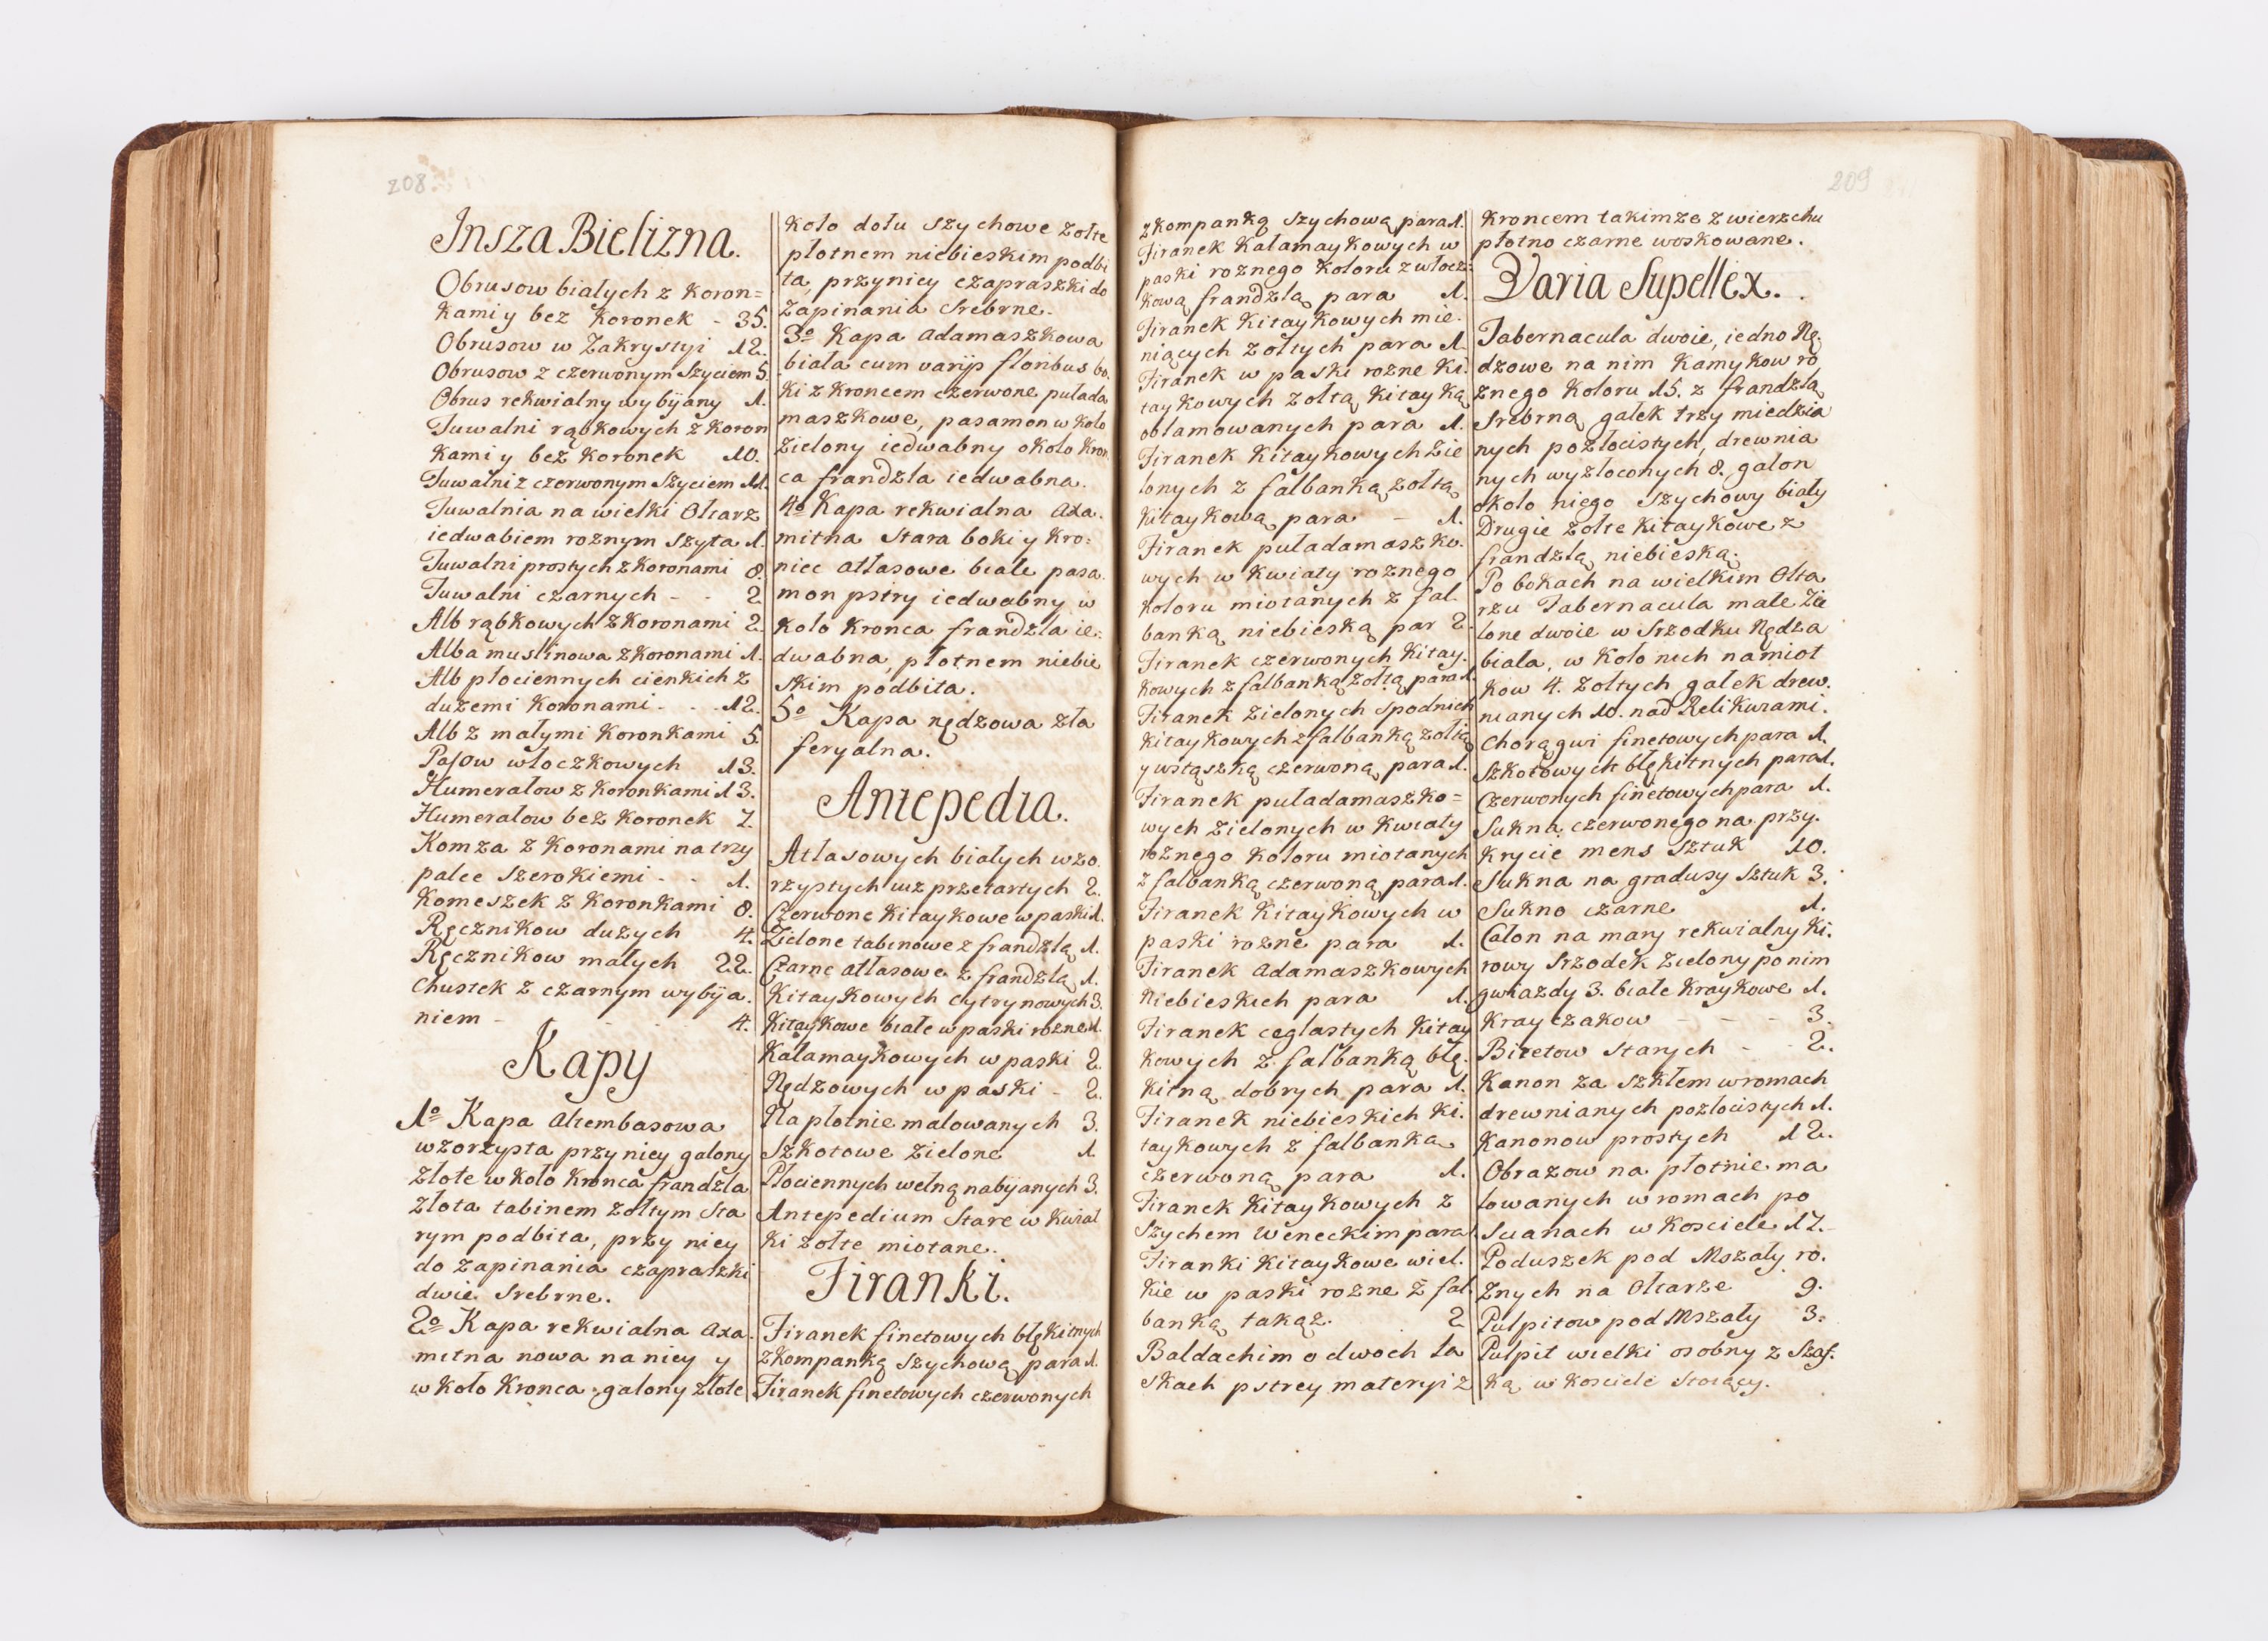 208
Jnsza Bielizna.
Obrusow białych z Koron=
kami y bez Koronek - 35.
Obrusow w Zakrystyi 12.
Obrusow z czerwonym szyciem 5
Obrus rekwialny wybijany 1.
Tuwalni rąbkowych z Koron
kami y bez Koronek 10.
Tuwalni z czerwonym szyciem 11.
Tuwalnia na wielki Ołtarz
iedwabiem roznym szyta 1.
Tuwalni prostych z Koronami 8.
Tuwalni czarnych - - 2
Alb rąbkowych z Koronami 2.
Alba muslinowa z Koronami 1.
Alb płociennych cienkich z
duzemi Koronami - . . 12.
Alb z małymi Koronkami 5.
Pasow włoczkowych 13.
Humerałow z Koronkami 13.
Humerałow bez Koronek 7.
Komza z Koronami na trzy
palce szerokiemi - - 1.
Komeszek z Koronkami 8.
Ręcznikow duzych 4.
Ręcznikow małych 22.
Chustek z czarnym wybija.
niem - 4.
Kapy
1º Kapa Altembasowa
wzorzysta przy niey galony
złote w koło Kronca frandzla
złota tabinem zołtym sta
rym podbita, przy niey
do zapinania czapraszki
dwie Srebrne.
2º Kapa rekwialna axa.
mitna nowa na niey y
w koło Kronca galony złote
koło dołu szychowe zołte
płotnem niebieskim podbi
ta, przyniey czapraszki do
zapinania Srebrne.
3º Kapa adamaszkowa
biała cum varijs floribus bo.
ki z kroncem czerwone pułada
maszkowe, pasamon w koło
zielony iedwabny około kron
ca frandzla iedwabna.
4º Kapa rekwialna axa.
mitna stara boki y kro:
niec atłasowe białe pasa.
mon pstry iedwabny w
koło Kronca frandzla ie:
dwabna płotnem niebie
skim podbita.
5º Kapa nędzowa zła
feryalna.
Antepedia.
Atłasowych białych wzo.
rzystych iuz przetartych 2.
Czerwone Kitaykowe w paski 1.
Zielone tabinowe z frandzlą 1.
Czarne atłasowe z frandzlą 1.
Kitaykowych cytrynowych 3.
Kitaykowe białe w paski rozne 1.
Kałamaykowych w paski 2.
Nędzowych w paski - 2.
Na płotnie malowanych 3.
Szkotowe zielone 1
Płociennych wełną nabijanych 3.
Antepedium Stare w kwiat
ki zołte miotane.
Firanki.
Firanek finetowych błękitnych
z kompanką szychową para 1.
Firanek finetowych czerwonych
209
z kompanką szychową para 1.
Firanek Kałamaykowych w
paski roznego koloru z włocz:
kową frandzlą para 1.
Firanek Kitaykowych mie.
niących zołtych para 1.
Firanek w paski rozne Ki.
taykowych zołtą Kitayką
obłamowanych para 1.
Firanek Kitaykowych zie
lonych z falbanką zołtą
Kitaykową para - 1.
Firanek puładamaszko.
wych w Kwiaty roznego
koloru miotanych z fal.
banką niebieską par 2.
Firanek czerwonych Kitay.
kowych z falbanką zołtą para 1.
Firanek zielonych spodnich
Kitaykowych z falbanką zołtą
y wstąszką czerwoną para 1.
Firanek puładamaszko=
wych zielonych w kwiaty
roznego koloru miotanych
z falbanką czerwoną para 1.
Firanek Kitaykowych w
paski rozne para 1.
Firanek adamaszkowych
niebieskich para 1.
Firanek ceglastych Kitay
kowych z falbanką błę.
kitną dobrych para 1.
Firanek niebieskich Ki.
taykowych z falbanką
czerwoną para 1.
Firanek Kitaykowych z
szychem Weneckim para 1.
Firanki Kitaykowe wiel.
kie w paski rozne z fal.
banką takąz. 2
Baldachim o dwoch la
skach pstrey materyi z
kroncem takimze z wierzchu
płotno czarne woskowane.
Varia Supellex.
Tabernacula dwoie, iedno Nę.
dzowe na nim kamykow ro
znego koloru 15. z frandzlą
Srebrną gałek trzy miedzia
nych pozłocistych, drewnia
nych wyzłoconych 8. galon
około niego szychowy biały
Drugie zołte Kitaykowe z
frandzlą niebieską.
Po bokach na wielkim Ołta
rzu Tabernacula małe zie
lone dwoie w Srzodku Nędza
biała, w koło nich namiot
kow 4. zołtych gałek drew.
nianych 10. nad Relikwiami.
Chorągwi finetowych para 1.
Szkotowych błękitnych para 1.
Czerwonych finetowych para 1.
Sukna czerwonego na przy.
krycie mens sztuk 10.
Sukna na gradusy sztuk 3.
Sukno czarne 1.
Całon na mary rekwialny Ki.
rowy Srzodek zielony po nim
gwiazdy 3. białe kraykowe 1.
Krayczakow - - - 3.
Biretow starych - - 2.
Kanon za szkłem w romach
drewnianych pozłocistych 1.
Kanonow prostych 12.
Obrazow na płotnie ma
lowanych w romach po
Scianach w Kosciele 17.
Poduszek pod Mszały ro.
znych na Ołtarze 9.
Pulpitow pod Mszały 3.
Pulpit wielki osobny z Szaf.
ką w Kosciele stoiący.